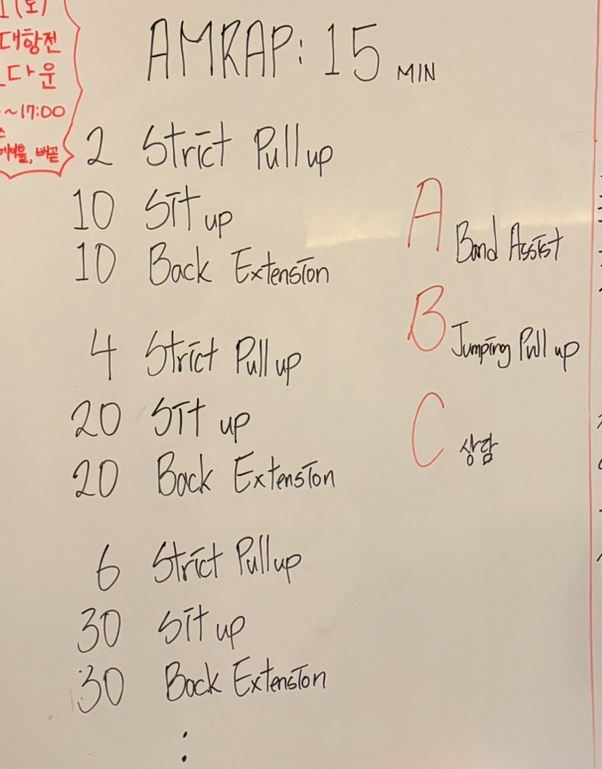 대항전
다운
~17:00
AMRAP: 15 MIN
2 Strict Pull up
10 Sit up
10 Back Extension
4 Strict Pull up
20 Sit up
20 Back Extension
6 Strict Pull up
30 Sit up
30 Back Extension
⋮
A Band Assist
B Jumping Pull up
C 상담